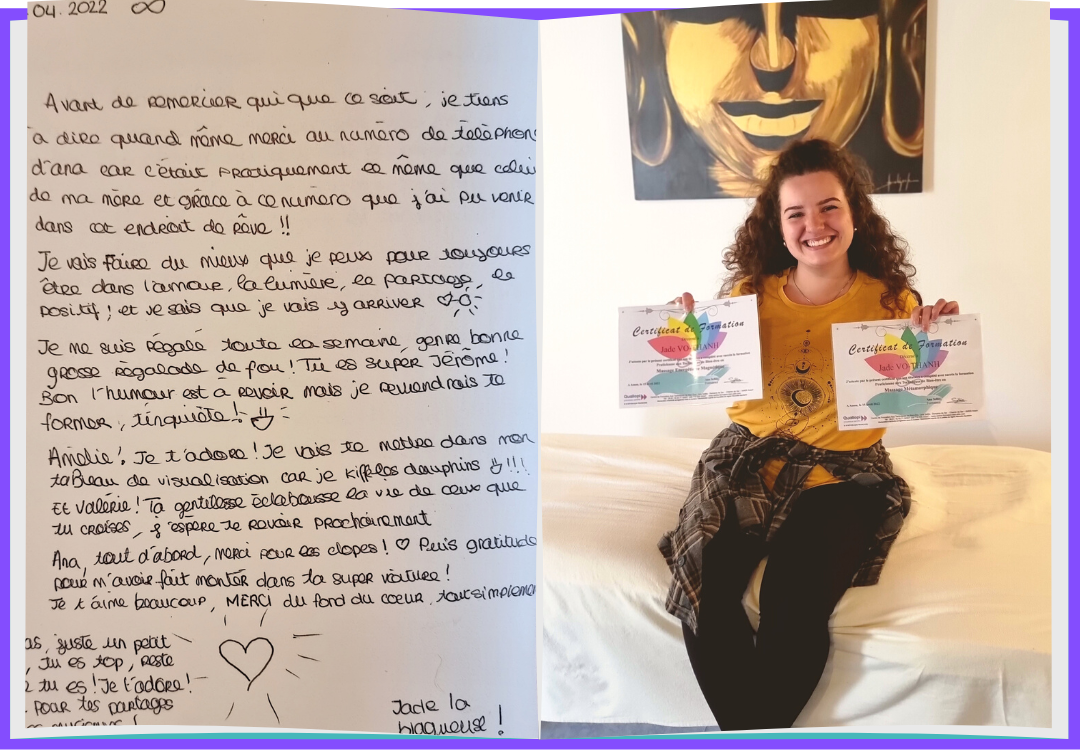 04.2022
Avant de remercier qui que ce soit, je tiens
à dire quand même merci au numéro de téléphone
d'ana car c'était pratiquement le même que celui
de ma mère et grâce à ce numéro que j'ai pu venir
dans cet endroit de rêve !!
Je vais faire du mieux que je peux pour toujours
être dans l'amour, la lumière, le partage, le
positif ! et je sais que je vais y arriver
Je me suis régalé toute la semaine, genre bonne
grosse régalade de fou ! Tu es super Jérôme !
Bon l'humour est à revoir mais je reviendrais te
former, t'inquiète !
Amélie ! Je t'adore ! Je vais te mettre dans mon
tableau de visualisation car je kiffe les dauphins !!!
Et Valérie ! Ta gentillesse éclabousse la vie de ceux que
tu croises, j'espère te revoir prochainement
Ana, tout d'abord, merci pour les clopes ! ♡ Puis gratitude
pour m'avoir fait monter dans ta super voiture !
Je t'aime beaucoup, MERCI du fond du coeur, tout simplement
as, juste un petit
, tu es top, reste
tu es ! Je t'adore !
pour tes partages
Jade la
blagueuse !
Certificat de Formation
Jade VO-THANH
Certificat de Formation
Jade VO-THANH
Massage Métamorphique